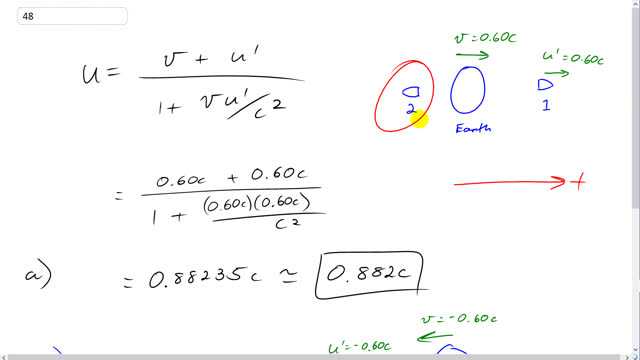 48
u = v + u' / 1 + vu'/c2
v = 0.60c
u' = 0.60c
2
Earth
1
= 0.60c + 0.60c / 1 + (0.60c)(0.60c)/c2
+
a) = 0.88235c ≃ 0.882c
v = -0.60c
u' = -0.60c